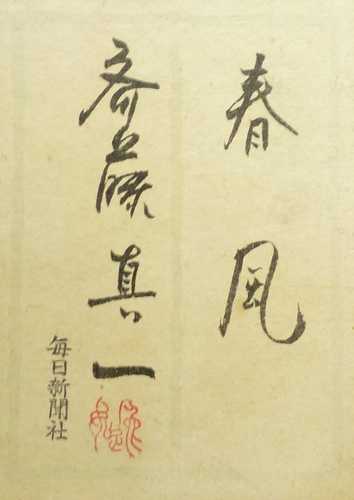 春風
斎藤真一
毎日新聞社